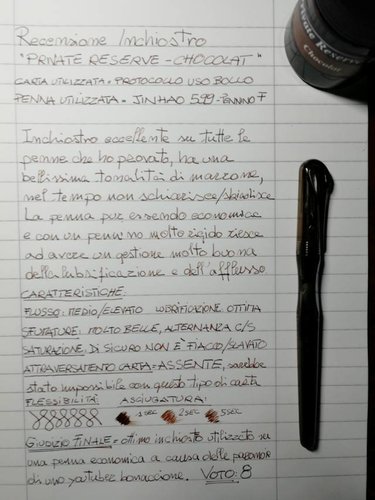 Recensione Inchiostro
"PRIVATE RESERVE - CHOCOLAT"
CARTA UTILIZZATA = PROTOCOLLO USO BOLLO
PENNA UTILIZZATA = JINHAO 599 - PENNINO F
Private Reserve
Chocolat
Inchiostro eccellente su tutte le
penne che ho provato, ha una
bellissima tonalità di marrone,
nel tempo non schiarisce/sbiadisce
La penna pur essendo economica
e con pennino molto rigido riesce
ad avere un gestione molto buona
della lubrificazione e dell'afflusso
CARATTERISTICHE.
FLUSSO: MEDIO/ELEVATO LUBRIFICAZIONE OTTIMA
SFUMATURE: MOLTO BELLE, ALTERNANZA C/S
SATURAZIONE: DI SICURO NON È FIACCO/SLAVATO
ATTRAVERSAMENTO CARTA = ASSENTE, sarebbe
stato impossibile con questo tipo di carta
FLESSIBILITÀ: ASCIUGATURA:
1 sec 2 sec 5 sec
GIUDIZIO FINALE = ottimo inchiostro utilizzato su
una penna economica a causa delle
di uno youtuber bonaccione. VOTO: 8